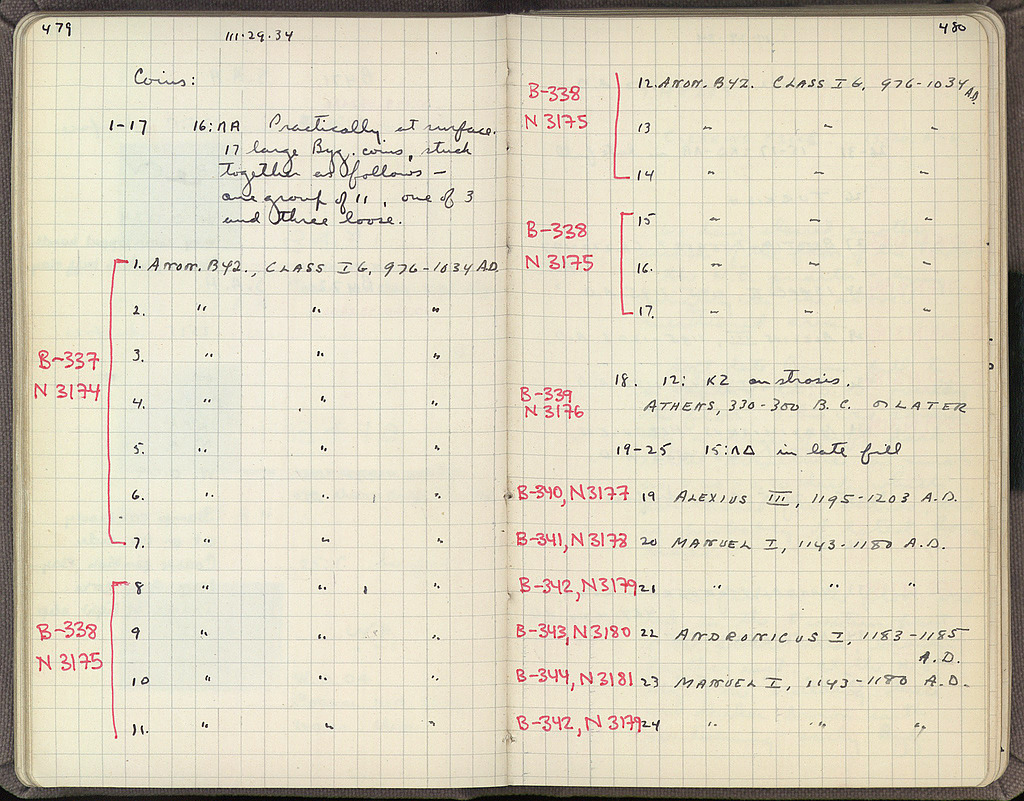 479
111·29·34
Coins:
1-17 16:ΛΑ Practically at surface.
17 large Byz. coins, stuck
together as follows —
one group of 11, one of 3
and three loose.
1. ANON. BYZ., CLASS I G, 976-1034 A.D.
2. " " "
3. " " "
B-337
N 3174
4. " " "
5. " " "
6. " " "
7. " " "
8 " " "
B-338
N 3175
9 " " "
10 " " "
11. " " "
480
B-338
N 3175
12. ANON. BYZ. CLASS I G, 976-1034 A.D.
13 " " "
14 " " "
B-338
N 3175
15 " " "
16. " " "
17. " " "
B-339
N 3176
18. 12: KZ on strosis.
ATHENS, 330-300 B.C. or LATER
19-25 15:ΛΔ in late fill
B-340, N3177 19 ALEXIUS III, 1195-1203 A.D.
B-341, N3178 20 MANUEL I, 1143-1180 A.D.
B-342, N3179 21 " " "
B-343, N3180 22 ANDRONICUS I, 1183-1185
A.D.
B-344, N3181 23 MANUEL I, 1143-1180 A.D.
B-342, N3179 24 " " "